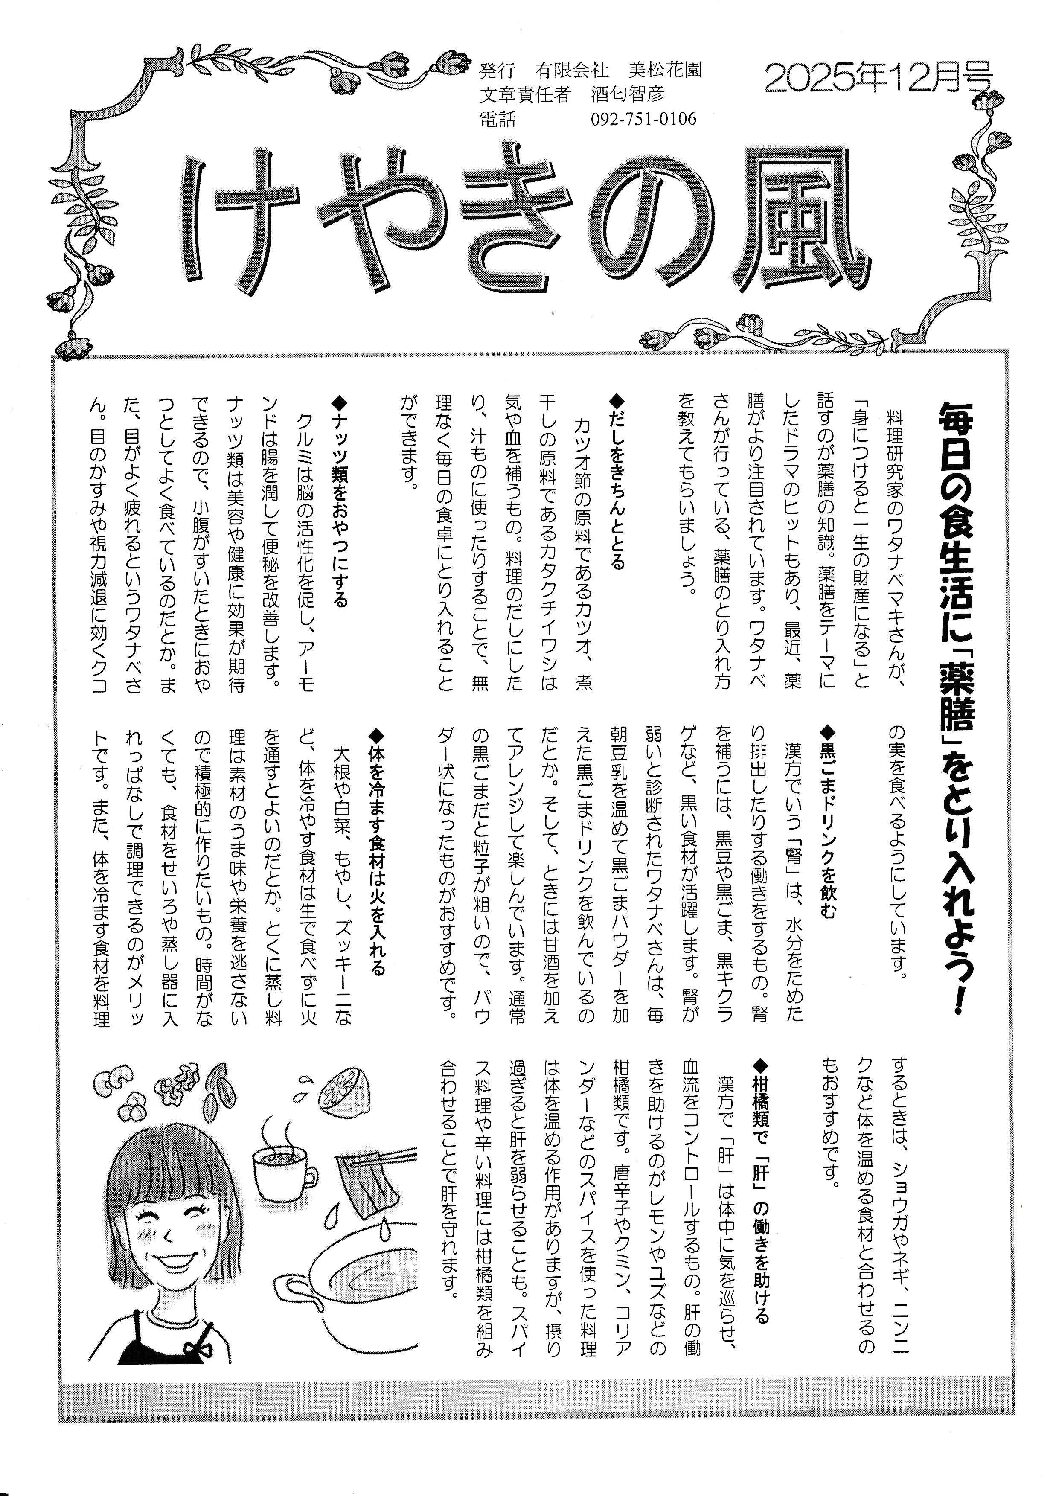 発行　有限会社　美松花園
文章責任者　酒匂智彦
電話　092-751-0106
2025年12月号
けやきの風
毎日の食生活に「薬膳」をとり入れよう！
料理研究家のワタナベマキさんが、
「身につけると一生の財産になる」と
話すのが薬膳の知識。薬膳をテーマに
したドラマのヒットもあり、最近、薬
膳がより注目されています。ワタナベ
さんが行っている、薬膳のとり入れ方
を教えてもらいましょう。
◆だしをきちんととる
カツオ節の原料であるカツオ、煮
干しの原料であるカタクチイワシは
気や血を補うもの。料理のだしにした
り、汁ものに使ったりすることで、無
理なく毎日の食卓にとり入れること
ができます。
◆ナッツ類をおやつにする
クルミは脳の活性化を促し、アーモ
ンドは腸を潤して便秘を改善します。
ナッツ類は美容や健康に効果が期待
できるので、小腹がすいたときにおや
つとしてよく食べているのだとか。ま
た、目がよく疲れるというワタナベさ
ん。目のかすみや視力減退に効くクコ
の実を食べるようにしています。
◆黒ごまドリンクを飲む
漢方でいう「腎」は、水分をためた
り排出したりする働きをするもの。腎
を補うには、黒豆や黒ごま、黒キクラ
ゲなど、黒い食材が活躍します。腎が
弱いと診断されたワタナベさんは、毎
朝豆乳を温めて黒ごまパウダーを加
えた黒ごまドリンクを飲んでいるの
だとか。そして、ときには甘酒を加え
てアレンジして楽しんでいます。通常
の黒ごまだと粒子が粗いので、パウ
ダー状になったものがおすすめです。
◆体を冷ます食材は火を入れる
大根や白菜、もやし、ズッキーニな
ど、体を冷やす食材は生で食べずに火
を通すとよいのだとか。とくに蒸し料
理は素材のうま味や栄養を逃さない
ので積極的に作りたいもの。時間がな
くても、食材をせいろや蒸し器に入
れっぱなしで調理できるのがメリッ
トです。また、体を冷ます食材を料理
するときは、ショウガやネギ、ニンニ
クなど体を温める食材と合わせるの
もおすすめです。
◆柑橘類で「肝」の働きを助ける
漢方で「肝」は体中に気を巡らせ、
血流をコントロールするもの。肝の働
きを助けるのがレモンやユズなどの
柑橘類です。唐辛子やクミン、コリア
ンダーなどのスパイスを使った料理
は体を温める作用がありますが、摂り
過ぎると肝を弱らせることも。スパイ
ス料理や辛い料理には柑橘類を組み
合わせることで肝を守れます。